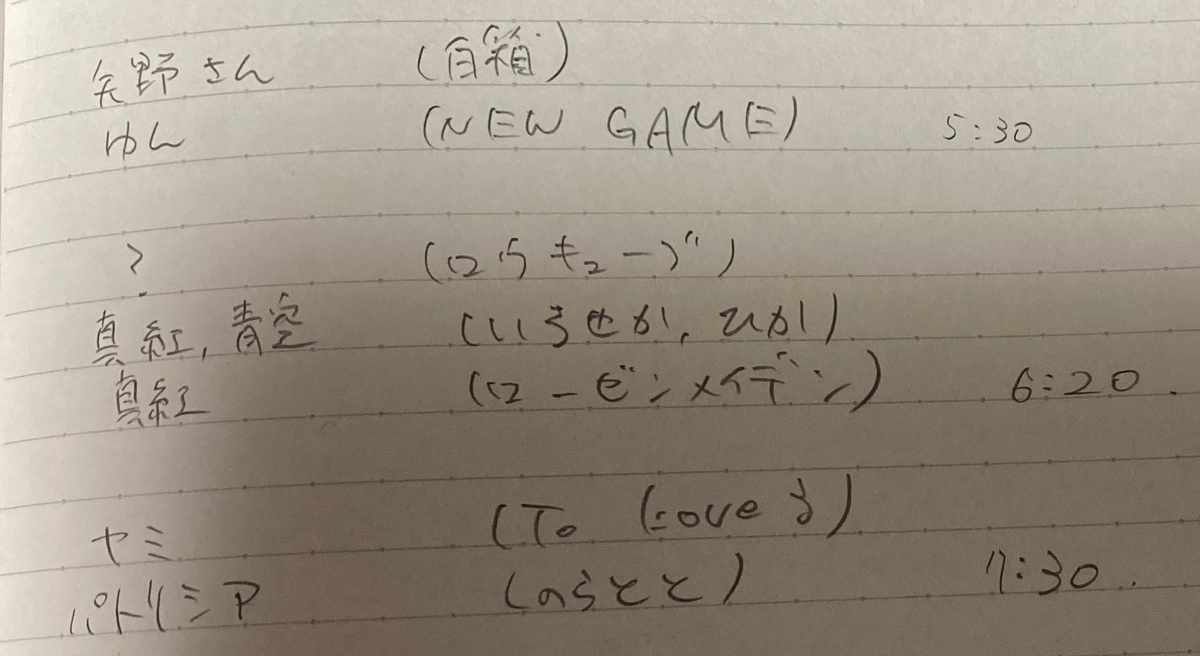 矢野さん (白箱)
ゆん (NEW GAME) 5:30
? (ロウきゅーぶ)
真紅,青空 (いろせか,ひか)
真紅 (ローゼンメイデン) 6:20.
ヤミ (To Loveる)
パトリシア (のらとと) 7:30.